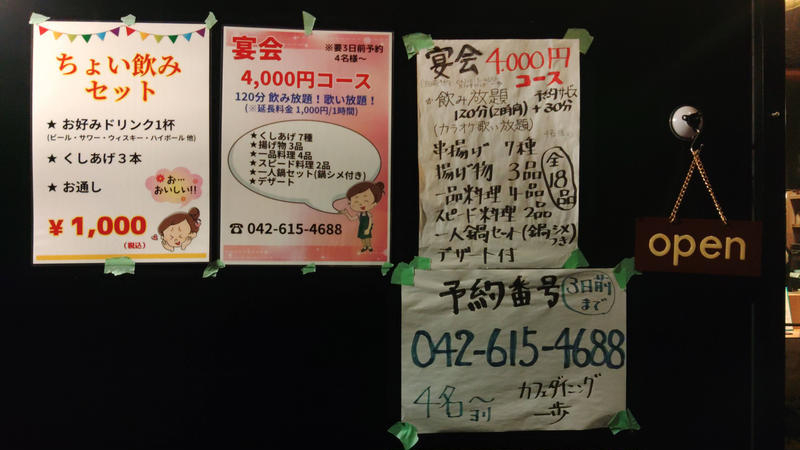 ちょい飲み
セット
★ お好みドリンク1杯
(ビール・サワー・ウィスキー・ハイボール 他)
★ くしあげ3本
★ お通し
お…
おいしい!!
¥1,000
(税込)
宴会
※要3日前予約
4名様~
4,000円コース
120分 飲み放題!歌い放題!
(※延長料金 1,000円/1時間)
★くしあげ 7種
★揚げ物 3品
★一品料理 4品
★スピード料理 2品
★一人鍋セット(鍋シメ付き)
★デザート
☎ 042-615-4688
宴会 4,000円
コース
飲み放題
120分(2時間)
+30分
(カラオケ歌い放題)
串揚げ 7種
揚げ物 3品
一品料理 4品
スピード料理 2品
一人鍋セット(鍋シメつき)
デザート付
全18品
予約番号
3日前まで
042-615-4688
4名~ヨリ
カフェダイニング
一歩
open